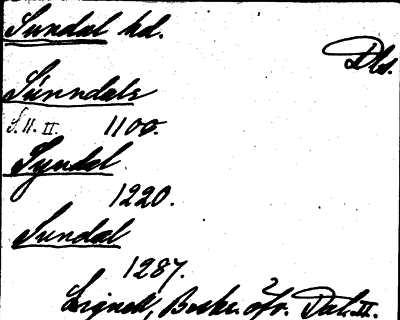 Sundal hd.
Dls.
Sunndals
S.H. II. 1100.
Syndal
1220.
Sundal
1287.
Lignell, Beskr. öfv. Dal. II.